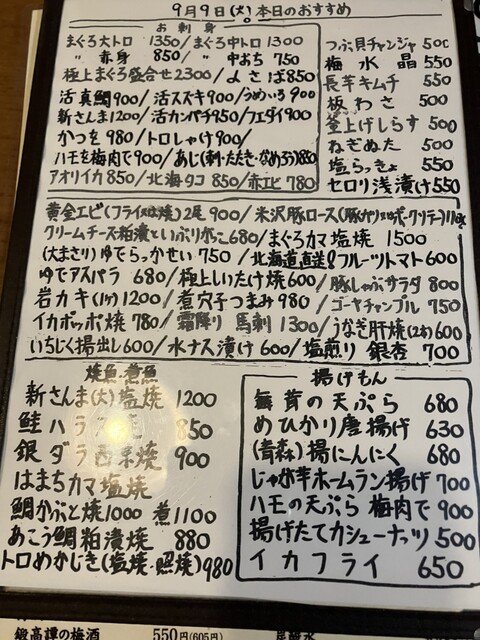 9月9日(火)本日のおすすめ
お刺身
まぐろ大トロ 1350/まぐろ中トロ 1300
〃 赤身 850/ 〃 中おち 750
極上まぐろ盛合せ2300/よこさば850
活真鯛900/活スズキ900/うめいろ900
新さんま1200/活カンパチ950/フエダイ900
かつを980/トロしゃけ900/
ハモを梅肉で900/あじ(刺・たたき・なめろう)880
アオリイカ850/北海タコ850/赤エビ780
つぶ貝チャンジャ 500
梅水晶 550
長芋キムチ 550
板わさ 500
釜上げしらす 500
ねぎぬた 500
塩らっきょ 550
セロリ浅漬け550
黄金エビ(フライ又は焼)2尾900/米沢豚ロース(豚カツ又はポークソテー)
クリームチーズ粕漬といぶりがっこ680/まぐろカマ塩焼 1500
(大まさり)ゆでらっかせい 750/北海道直送!!フルーツトマト600
ゆでアスパラ 680/極上しいたけ焼600/豚しゃぶサラダ 800
岩カキ(1ヶ)1200/煮穴子つまみ980/ゴーヤチャンプル 750
イカポッポ焼 780/霜降り 馬刺 1300/うなぎ肝焼(2本)600
いちじく揚出し600/水ナス漬け600/塩煎り 銀杏 700
焼魚・煮魚
新さんま(大)塩焼 1200
鮭ハラス 850
銀ダラ西京焼 900
はまちカマ塩焼
鯛かぶと焼1000 煮1100
あこう鯛粕漬焼 880
トロめかじき(塩焼・照焼)980
揚げもん
舞茸の天ぷら 680
めひかり唐揚げ 630
(青森)揚にんにく 680
じゃが芋ホームラン揚げ 700
ハモの天ぷら 梅肉で 900
揚げたてカシューナッツ 500
イカフライ 650
鍛高譚の梅酒 550円(605円)